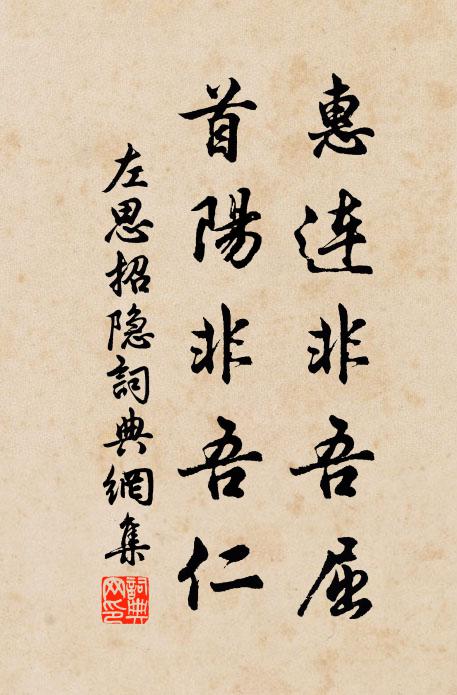 惠連非吾屈
首陽非吾仁
左思招隐詞典網集
詞典网印